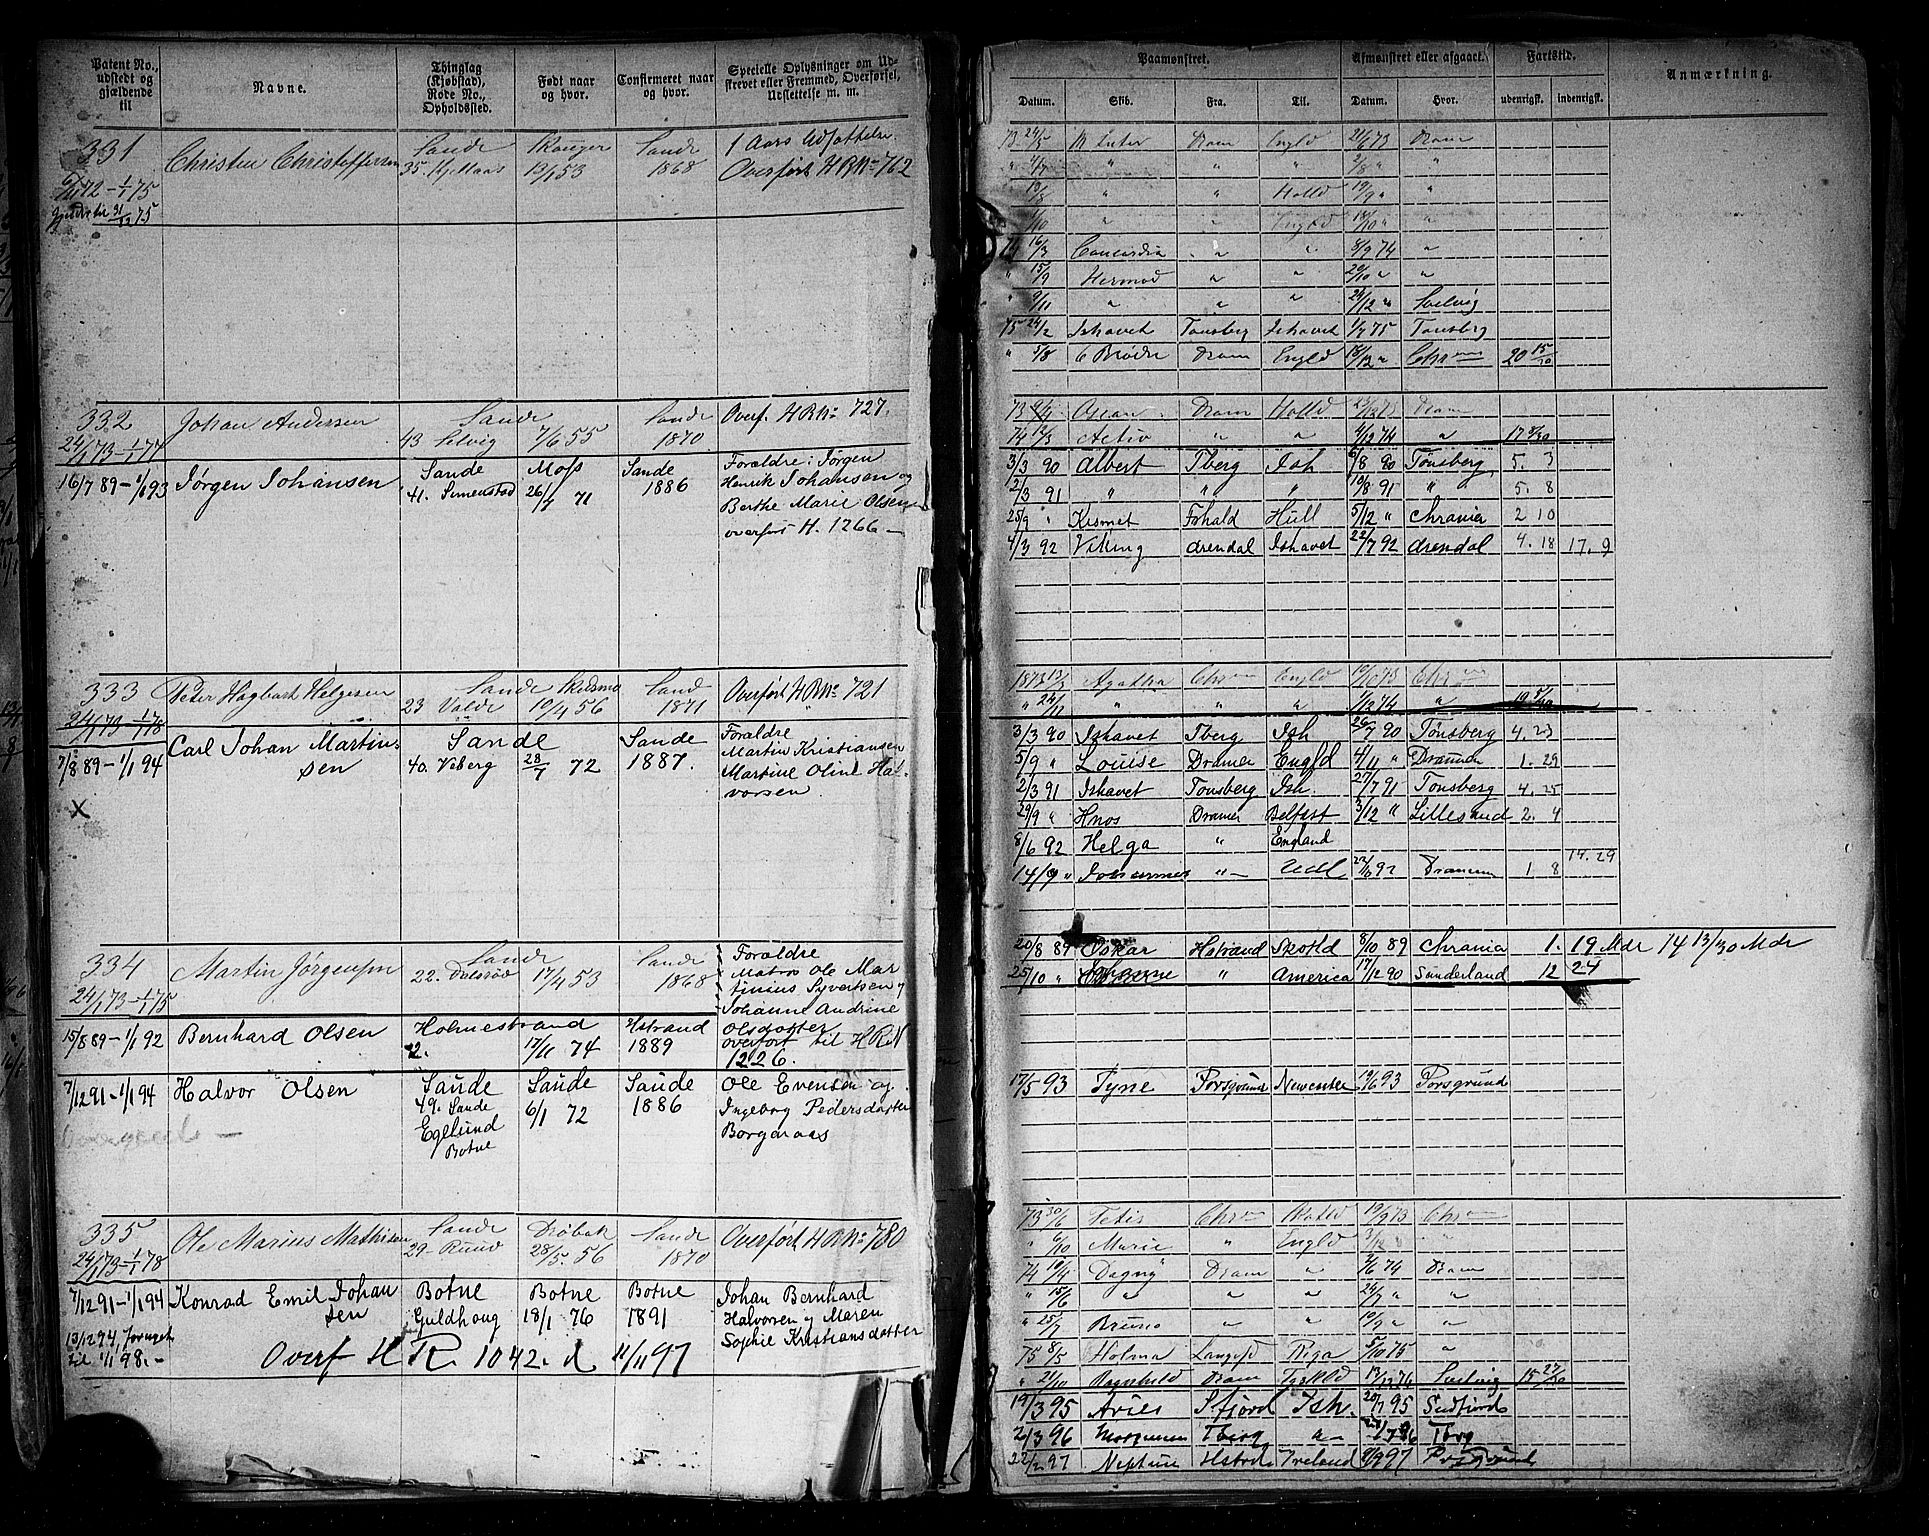 Patent No., udstedt og gjældende til
Navne.
Thinglag (Kjøbstad), Rode No., Opholdssted.
Født naar og hvor.
Confirmeret naar og hvor.
Specielle Oplysninger om Udskrevet eller Fremmed, Overførsel, Udslettelse m. m.
331 Christen Christoffersen Sande Skouger Sande 1 Aars Udsættelse.
35. 13/1 53 1868 Overført H R No 762
72 – 1/1 75
31/12 75
332 Johan Andersen Sande Sande Overf. H R No 727.
24/1 73 – 1/1 74 43 Selvig 7/6 55 1870.
16/7 89 – 1/1 93 Jørgen Johansen Sande Moss Sande Foraldre: Jørgen
41. Semenstad 26/7 71 1886 Henrik Johansen og
Berthe Marie Olsen
overført H. 1266 –
333 Peter Hagbart Helgesen Sande Skedsmo Sande Overført H R No 721
24/1 73 – 1/1 78 23 Valde 10/4 56 1871
7/8 89 – 1/1 94 Carl Johan Martinsen Sande Sande Foraldre
40. Veberg 28/7 72 1887. Martin Kristiansen
Martine Oline Halvorsen
X
334 Martin Jørgensen Sande Sande Foraldre
24/1 73 – 1/1 75 22. Dalsrød 17/4 53 1868 Matros Ole Martinius Syvertsen og
Johanne Andrine
15/8 89 – 1/1 92 Bernhard Olsen Holmestrand Hstrand Olsdatter
2. 17/11 74 1889 overført til H R N
1226.
7/12 91 – 1/1 94 Halvor Olsen Sande Sande Sande Ole Evensen og
49. Sande 6/1 72 1886 Ingeborg Pedersdatter
Egelund Borgeraas
Botne
335 Ole Marius Mathisen Sande Drøbak Sande Overført H R No 780
24/1 73 – 1/1 78 29 Ruud 28/5. 56 1870
7/12 91 – 1/1 94 Konrad Emil Johansen Botne Botne Botne Johan Bernhard
Guldhaug 18/1 76 1891 Halvorsen og Maren
13/12 94 fornyet Sophie Kristiansdatter
til 1/1 98. – Overf H R. 1042. d 11/11 97
Paamønstret. Afmønstret eller afgaaet. Fartstid. Anmærkning.
Datum. Skib. Fra. Til. Datum. Hvor. udenrigsk. indenrigsk.
73 24/5 Dram Engld 21/6 73 Dram
" 4/7 " " " 2/8 " "
19/8 " " Holld 19/9 " "
1/10 " " Engld 18/10 " "
74 16/3 Concordia " " 8/9 74 "
" 15/9 Hermod " " 20/10 " "
" 9/11 " " " 24/12 " Svelvig
75 24/2 Ishavet Tønsberg Ishavet 1/7 75 Tønsberg
" 5/8 6 Brødre Dram Engld 18/12 " Chr 20 15/30
73 Dram Holld Dram
74 12/3 Activ " " 4/12 74 " 17 8/30
3/3 90 Albert Tberg Ish 6/8 90 Tønsberg 5. 3
2/3 91 " " " 10/8 91 " 5. 8
25/9 " Kismet Fshald Hull 5/12 " Chrania 2 10
4/3 92 Viking Arendal Ishavet 22/7 92 Arendal 4. 18 17. 9
1873 13/3 Agatha Chr Engld 10/10 73 Chr
" 24/11 " " " 1/12 74 "
3/3 90 Ishavet Tberg Ish 26/7 90 Tønsberg 4. 23
5/9 " Louise Dramen Engld 4/11 " Dramen 1. 29
2/3 91 Ishavet Tønsberg Ish. 27/7 91 Tønsberg 4. 25
29/9 " Hnos Dramen Belfast 3/12 " Lillesand 2. 4
8/6 92 Helga " England
14/9 " Johannes " – Udl 22/10 92 Dramen 1 8 14. 29
20/8 89 Oskar Hstrand Skotld 8/10 89 Chrania 1. 19 Mdr 14 13/30 Mdr
25/10 " " America 17/12 90 Sunderland 12 24
17/5 93 Tyne Porsgrund Newcastle 19/6 93 Porsgrund
73 30/6 Tetis Chr Skotld 19/9 73 Chr
" 6/10 Marie " Engld "
74 10/4 Dagny Dram " 2/6 74 Dram
" 15/6 " " " 24/7 " "
" 25/7 Bruno " " 19/9 " "
75 8/5 Holma Langesd Riga 5/10 75 "
" 21/10 Ragnhild Dram Tyskld 17/12 76 Svelvig 15 27/30
19/3 95 Aries Sfjord Ish. 20/7 95 Sndfjord
2/3 96 Tberg " 96 Tbrg
22/2 97 Neptune Hstrd Ireland 9/9 97 Porsgrund